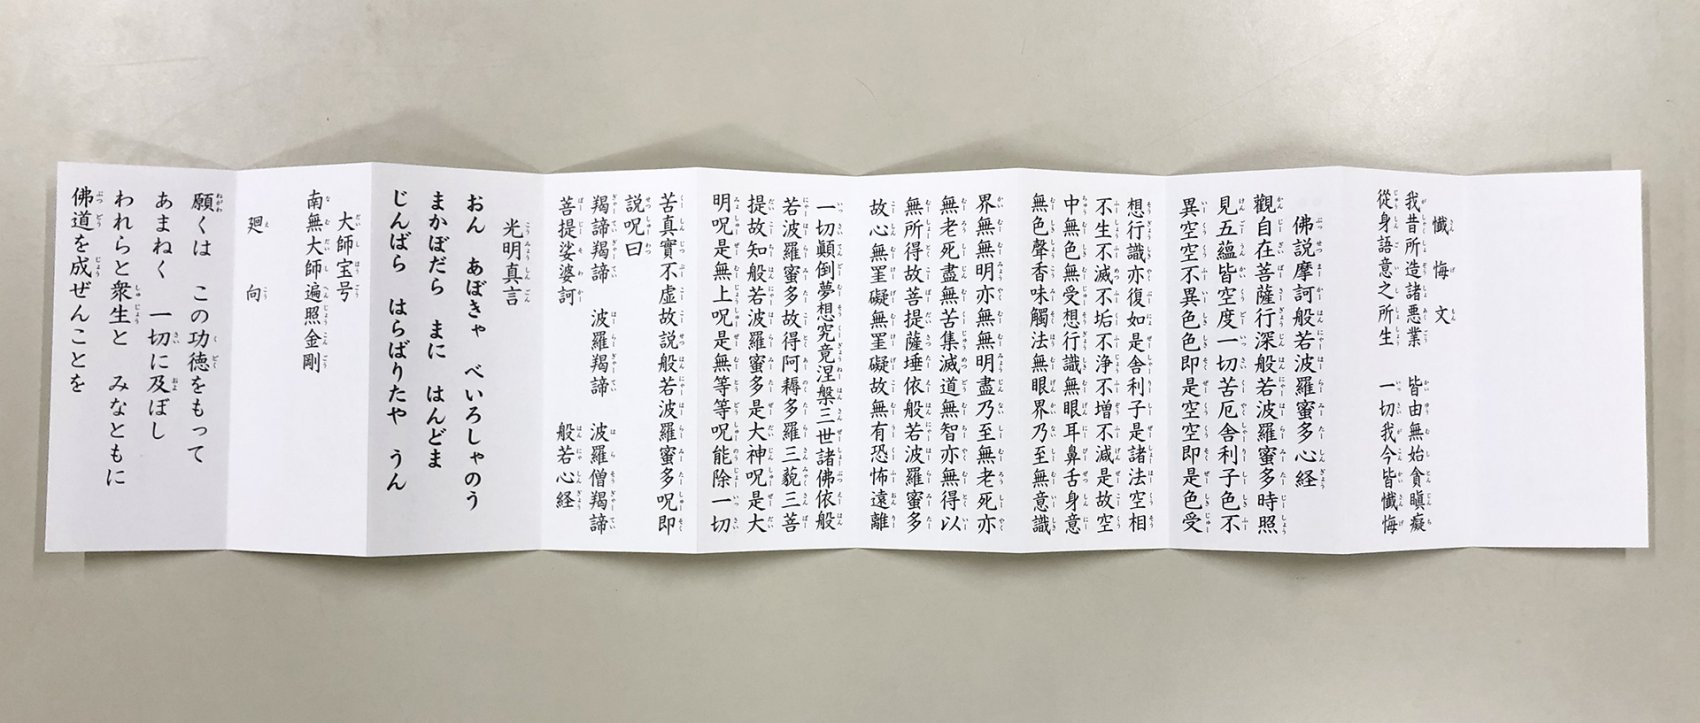 懺悔文
我昔所造諸悪業　皆由無始貪瞋癡
從身語意之所生　一切我今皆懺悔
佛説摩訶般若波羅蜜多心経
觀自在菩薩行深般若波羅蜜多時照
見五蘊皆空度一切苦厄舎利子色不
異空空不異色色即是空空即是色受
想行識亦復如是舎利子是諸法空相
不生不滅不垢不浄不増不減是故空
中無色無受想行識無眼耳鼻舌身意
無色聲香味觸法無眼界乃至無意識
界無無明亦無無明盡乃至無老死亦
無老死盡無苦集滅道無智亦無得以
無所得故菩提薩埵依般若波羅蜜多
故心無罣礙無罣礙故無有恐怖遠離
一切顚倒夢想究竟涅槃三世諸佛依般
若波羅蜜多故得阿耨多羅三藐三菩
提故知般若波羅蜜多是大神呪是大
明呪是無上呪是無等等呪能除一切
苦真實不虚故説般若波羅蜜多呪即
説呪曰
羯諦羯諦　波羅羯諦　波羅僧羯諦
菩提娑婆訶　般若心経
光明真言
おん　あぼきゃ　べいろしゃのう
まかぼだら　まに　はんどま
じんばら　はらばりたや　うん
大師宝号
南無大師遍照金剛
廻向
願くは　この功徳をもって
あまねく　一切に及ぼし
われらと衆生と　みなともに
佛道を成ぜんことを